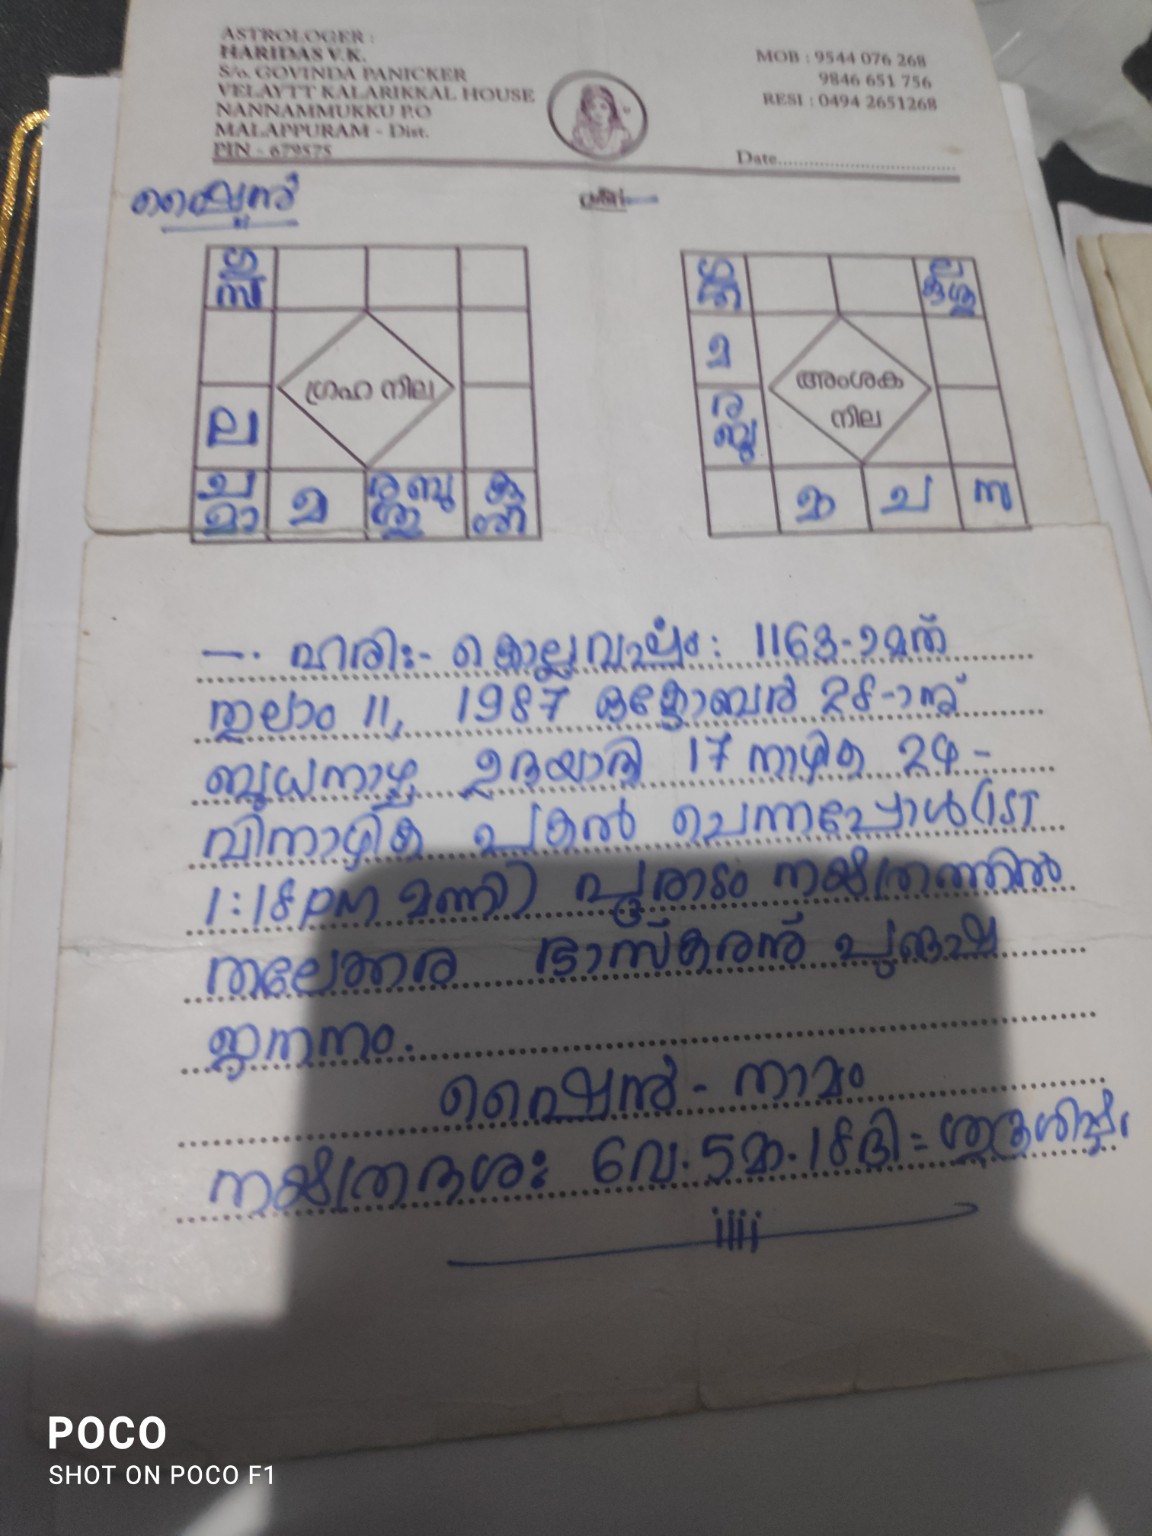 ASTROLOGER :
HARIDAS V.K.
S/o. GOVINDA PANICKER
VELAYTT KALARIKKAL HOUSE
NANNAMMUKKU P.O
MALAPPURAM - Dist.
PIN - 679575
MOB : 9544 076 268
9846 651 756
RESI : 0494 2651268
Date
ഷൈൻ
ഗു
സ
ല
ച
മാ
മ
ര ബു
ശു
കു
ശി
ഗ്രഹ നില
ഗു
ല
മ
ര
ബു
മാ
ച
സ
അംശക
നില
ഹരിഃ- കൊല്ലവർഷം : 1163-ാമത്
തുലാം 11, 1987 ഒക്ടോബർ 28-ാന്
ബുധനാഴ്ച ഉദയാദി 17 നാഴിക 24 -
വിനാഴിക പകൽ ചെന്നപ്പോൾ (IST
1:18 PM മണി) പൂരാടം നക്ഷത്രത്തിൽ
തലേക്കര ഭാസ്കരന് പുരുഷ
ജനനം.
ഷൈൻ - നാമം
നക്ഷത്രദശ: 6വ. 5മാ. 18ദി = ശുക്രശിഷ്ടം